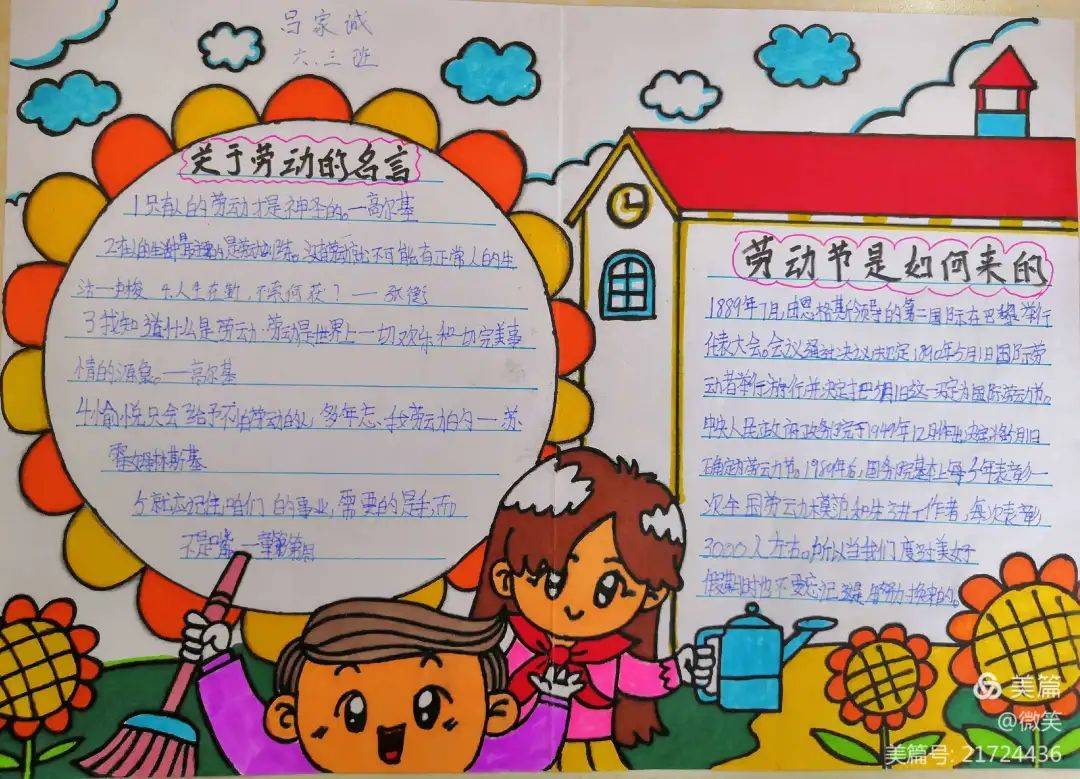 吕家诚
六.三班
关于劳动的名言
1只有人的劳动才是神圣的。一高尔基
2.在人的生活中最主要的是劳动训练。没有劳动就不可能有正常人的生
活一卢梭 4.人生在勤,不索何获?一一张衡
3我知道什么是劳动.劳动是世界上一切欢乐和一切完美事
情的源泉。一一高尔基
4愉悦只会给予不怕劳动的人,多年
霍姆林斯基
5就应记住咱们的事业,需要的是手而
不是嘴
劳动节是如何来的
1889年7月,由恩格斯领导的第二国际在巴黎举行
代表大会。会议通过决议规定1890年5月1日国际劳
动者举行游行并决定把5月1日这一天定为国际劳动节。
中央人民政府政务院于1949年12月作出决定将5月1日
确定为劳动节。1989年后,国务院基本上每5年表彰一
次全国劳动模范和先进工作者,每次表彰
3000人左右。所以当我们度过美好
假期时也不要忘记
美篇
@微笑
美篇号: 21724436